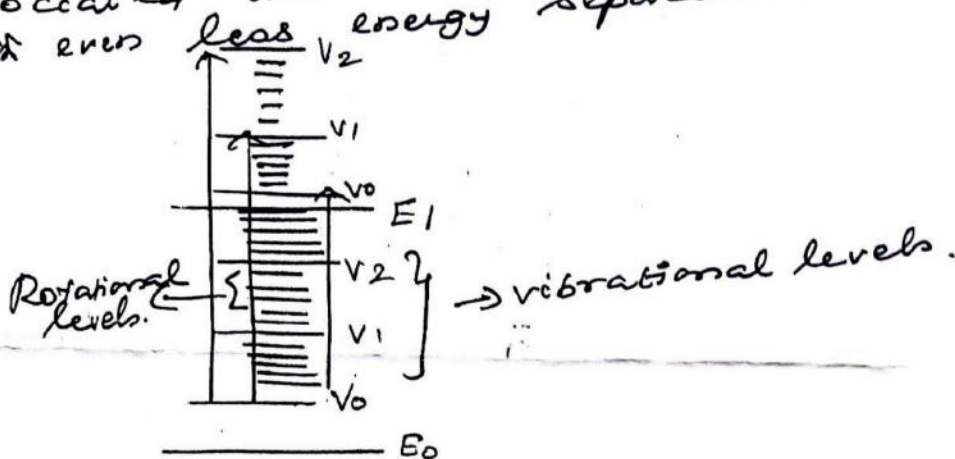 even less energy
V2
V1
V0
E1
V2
Rotational levels.
→ vibrational levels.
V1
V0
E0